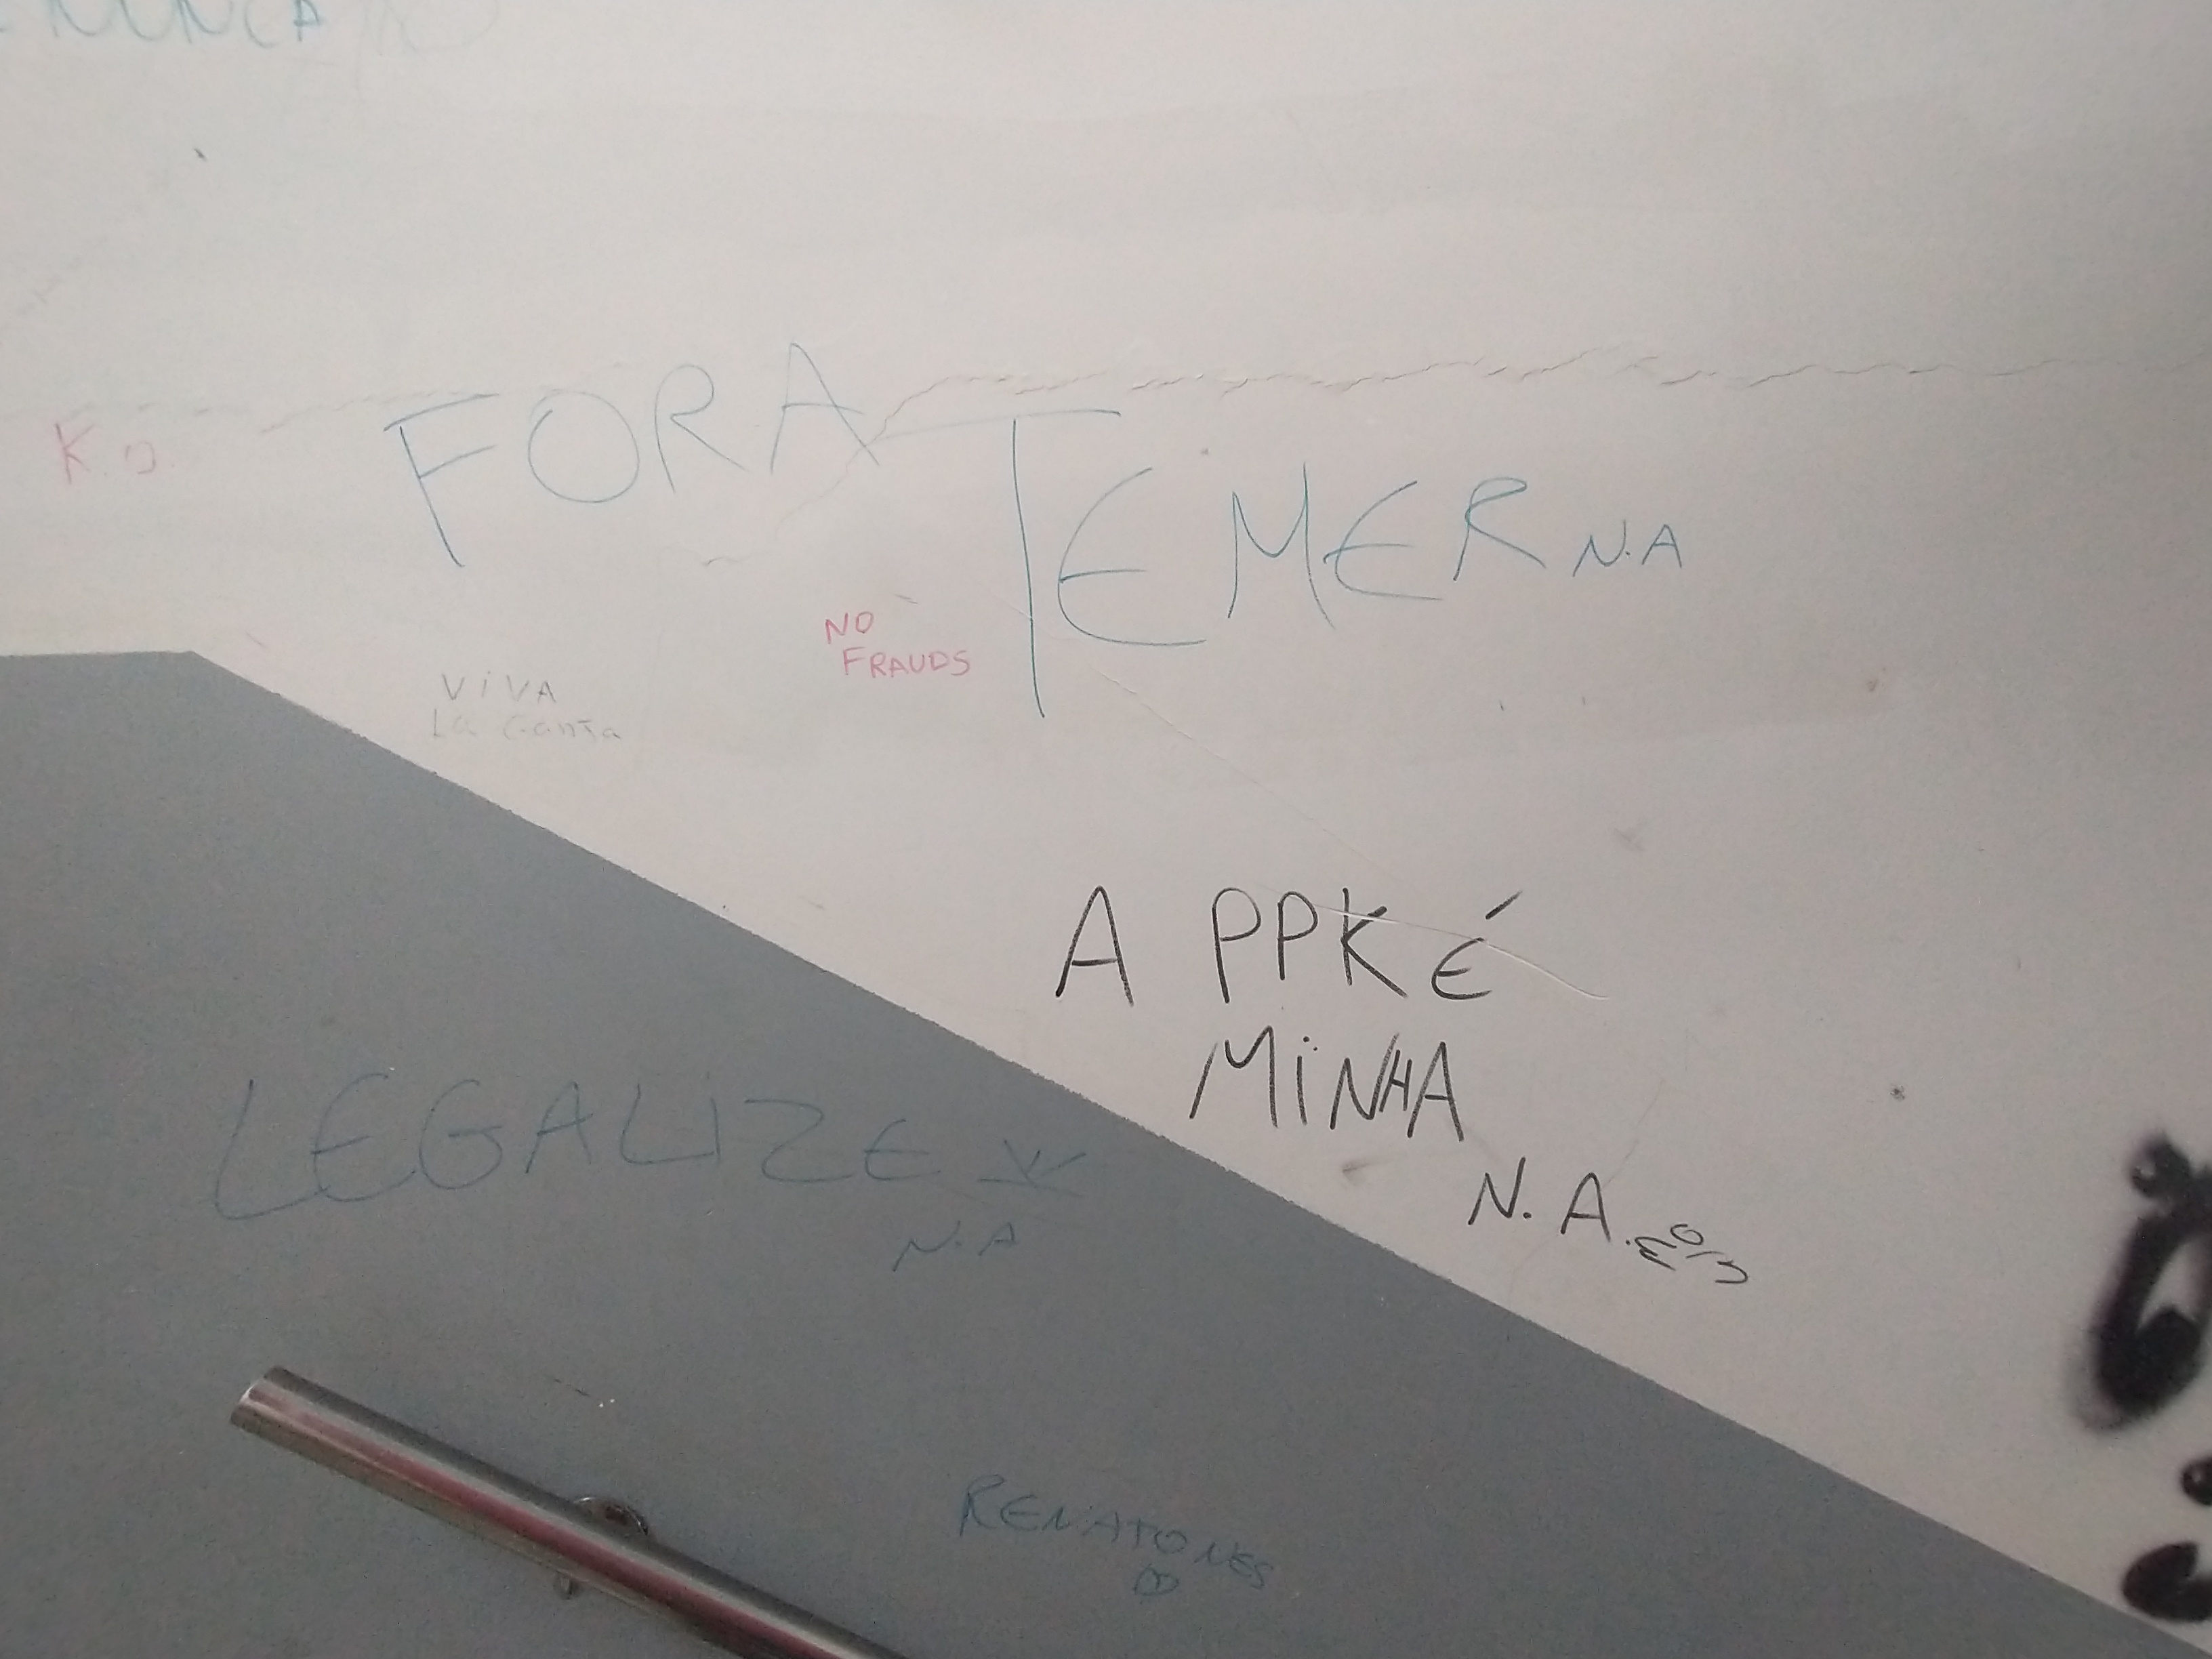 FORA TEMER N.A
NO
FRAUDS
VIVA
La Ganja
A PPK É
MINHA
N.A.
LEGALIZE
N.A
RENATONES